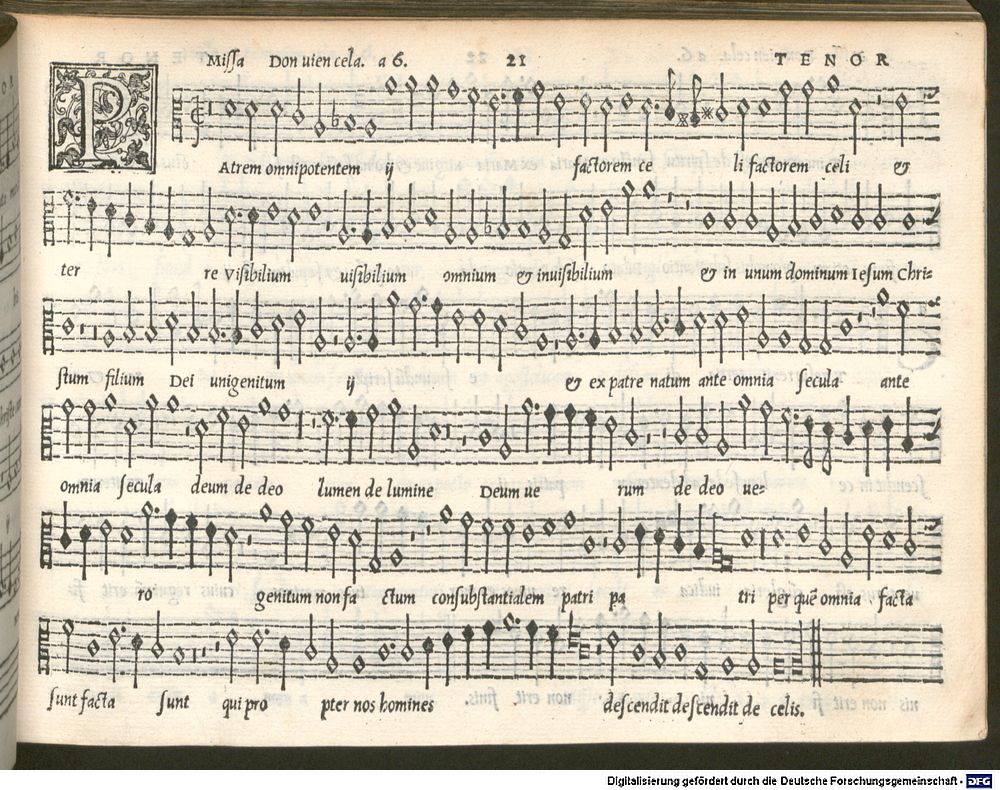 Missa Don uien cela. a 6. 21 TENOR
PAtrem omnipotentem ij factorem ce li factorem celi &
ter re Visibilium uisibilium omnium & inuisibilium & in unum dominum Iesum Chri=
stum filium Dei unigenitum ij & ex patre natum ante omnia secula ante
omnia secula deum de deo lumen de lumine Deum ue rum de deo ue=
ro genitum non fa ctum consubstantialem patri pa tri per quē omnia facta
sunt facta sunt qui pro pter nos homines descendit descendit de celis.
Digitalisierung gefördert durch die Deutsche Forschungsgemeinschaft - DFG